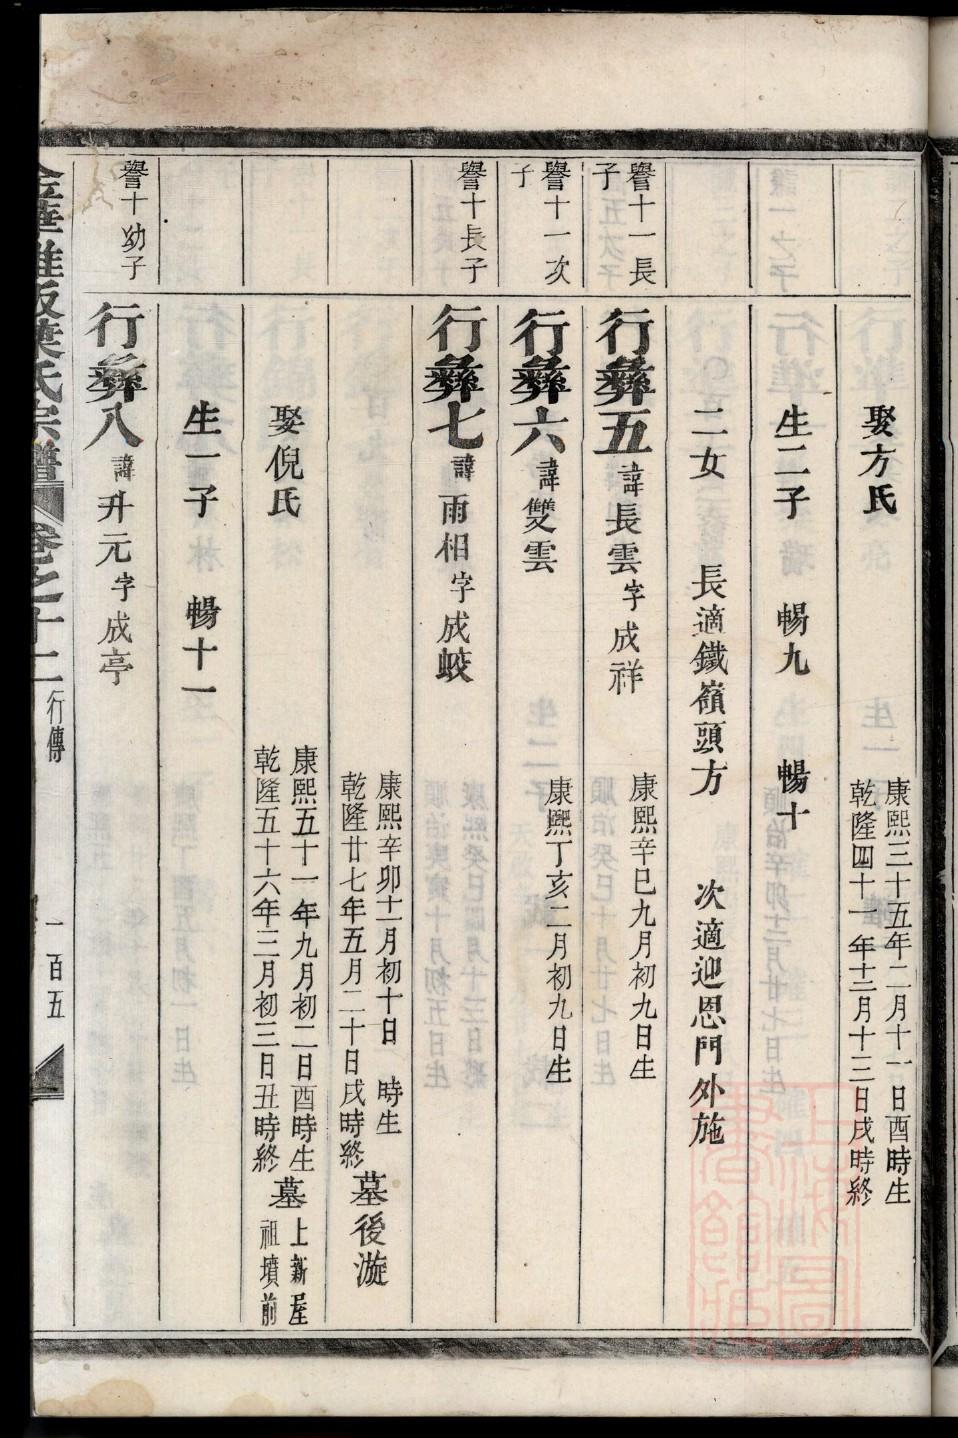 娶方氏
康熙三十五年二月十一日酉時生
乾隆四十一年十二月十三日戌時終
生二子 暢九 暢十
二女 長適鐵嶺頭方 次適迎恩門外施
譽十一長
子
行彝五 諱長雲字成祥
康熙辛巳九月初九日生
譽十一次
子
行彝六 諱雙雲
康熙丁亥二月初九日生
譽十長子
行彝七 諱雨相字成蛟
康熙辛卯十二月初十日 時生
乾隆廿七年五月二十日戌時終
墓後漩
娶倪氏
康熙五十一年九月初二日酉時生
乾隆五十六年三月初三日丑時終
墓
上新屋
祖墳前
生一子 暢十一
譽十幼子
行彝八 諱升元字成亭
葉氏宗譜 卷之十二 行傳
一百五